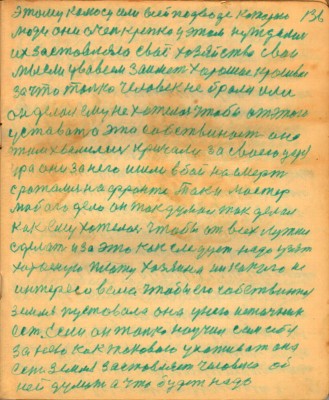 этому колосу или всей подводе которую 136
люди они очень крепко у этом нуждались
их заставляло своё хозяйство свои
мысли у всвоем занимат хорошие
за что только человек не брался или
он делал ему не хотелося чтобы от этого
уставать а это собственност она
жила кричали за своего
они за него шли в бой на смерт
сражались на фронте Так и мастер
дела он так думал так делал
как ему хотелося чтобы от всех лучше
сделат и за это как следует надо узят
хорошую плату хозяина никакого не
интересовала чтобы его собственная
земля пустовала она у него источник
ест. Если он только научил сам себя
за нею как таковою ухаживат она
ест. Земля заставляет человека об
ней думат а что будет надо